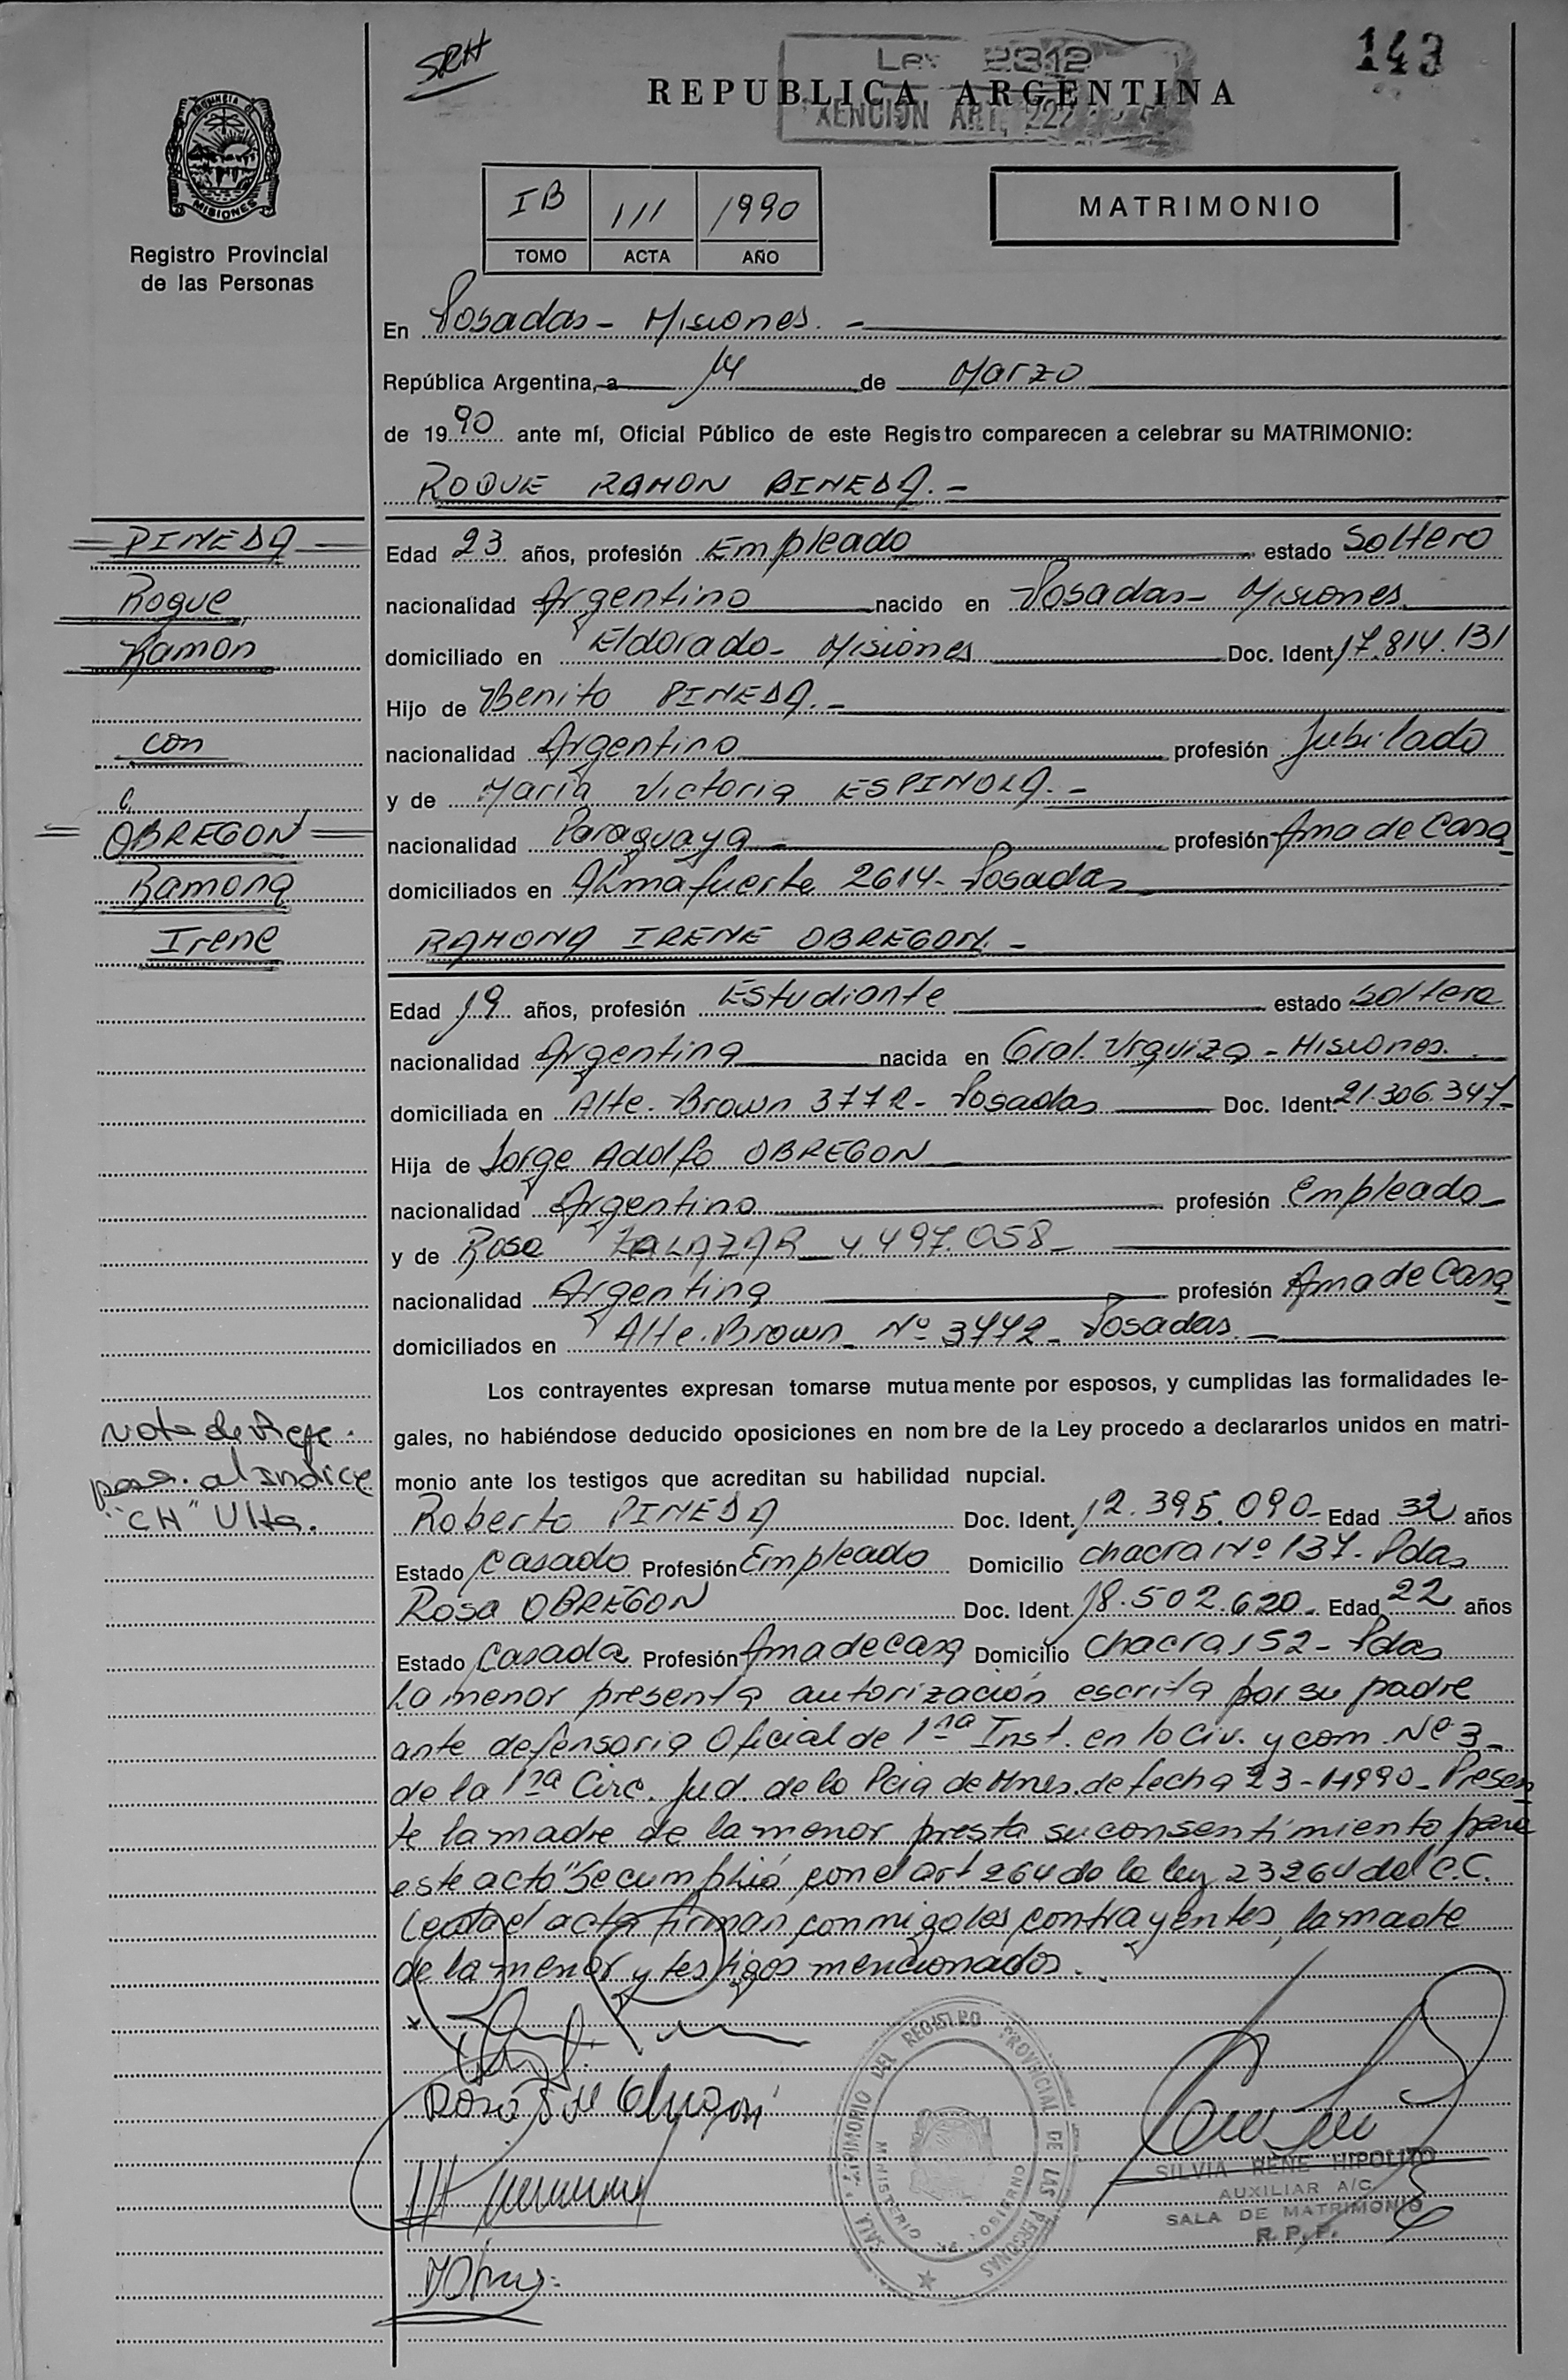 SRH
Ley 2312
143
REPUBLICA ARGENTINA
EXENCION ART. 222
PROVINCIA DE
MISIONES
Registro Provincial
de las Personas
IB 111 1990
TOMO ACTA AÑO
MATRIMONIO
En Posadas - Misiones. -
República Argentina, a 14 de Marzo
de 1990 ante mí, Oficial Público de este Registro comparecen a celebrar su MATRIMONIO:
ROQUE RAMON PINEDA. -
PINEDA
Roque
Ramon
con
OBREGON
Ramona
Irene
Edad 23 años, profesión Empleado estado Soltero
nacionalidad Argentino nacido en Posadas - Misiones
domiciliado en Eldorado - Misiones Doc. Ident. 17.814.131
Hijo de Benito PINEDA. -
nacionalidad Argentino profesión Jubilado
y de Maria Victoria ESPINOLA. -
nacionalidad Paraguaya - profesión Ama de Casa
domiciliados en Almafuerte 2614 - Posadas
RAMONA IRENE OBREGON. -
Edad 19 años, profesión Estudiante estado Soltera
nacionalidad Argentina nacida en Gral. Urquiza - Misiones.
domiciliada en Alte. Brown 3772 - Posadas Doc. Ident. 21.306.347
Hija de Jorge Adolfo OBREGON
nacionalidad Argentino profesión Empleado
y de Rosa ZALAZAR 4.497.058 -
nacionalidad Argentina profesión Ama de Casa
domiciliados en Alte. Brown Nº 3772 - Posadas. -
Los contrayentes expresan tomarse mutuamente por esposos, y cumplidas las formalidades le-
gales, no habiéndose deducido oposiciones en nombre de la Ley procedo a declararlos unidos en matri-
monio ante los testigos que acreditan su habilidad nupcial.
Nota de Refe.
pas. al Indice
"CH" Ulta.
Roberto PINEDA Doc. Ident. 12.395.090 - Edad 32 años
Estado Casado Profesión Empleado Domicilio chacra Nº 137 - Pdas
Rosa OBREGON Doc. Ident. 18.502.620 - Edad 22 años
Estado Casada Profesión Ama de casa Domicilio chacra 152 - Pdas
La menor presenta autorización escrita por su padre
ante defensoria Oficial de 1ra Inst. en lo Civ. y com. Nº 3 -
de la 1ra Circ. Jud. de la Pcia de Mnes. de fecha 23-1-1990 - Presen
te la madre de la menor presta su consentimiento para
este acto "Se cumplió con el art 264 de la ley 23264 del C.C.
Leida el acta firman conmigo los contrayentes, la madre
de la menor y testigos mencionados.
SALA MATRIMONIO DEL REGISTRO PROVINCIAL DE LAS PERSONAS
MINISTERIO DE GOBIERNO
SILVIA RENE HIPOLITO
AUXILIAR A/C
SALA DE MATRIMONIO
R. P. P.